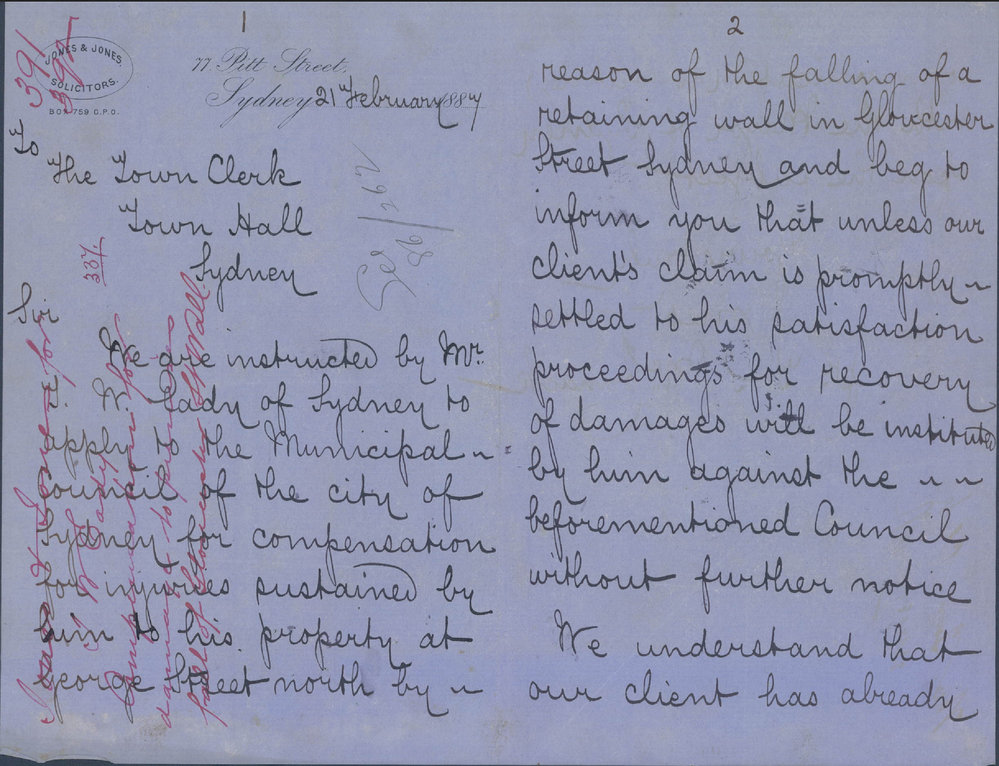 1
391
392
JONES & JONES
SOLICITORS.
BOX 759 G.P.O.
77 Pitt Street,
Sydney 21 February 1887
To
The Town Clerk
Town Hall
Sydney
Sir
We are instructed by Mr.
T. W. Eady of Sydney to
apply to the Municipal ~
Council of the city of
Sydney for compensation
for injuries sustained by
him to his property at
George Street north by ~
337.
Jones & Jones for
T W Eady
Compensation for
damage to premises
fall of Gloucester St Wall
86/262
2
reason of the falling of a
retaining wall in Gloucester
Street Sydney and beg to
inform you that unless our
client's claim is promptly ~
settled to his satisfaction
proceedings for recovery
of damages will be instituted
by him against the ~ ~
beforementioned Council
without further notice
We understand that
our client has already